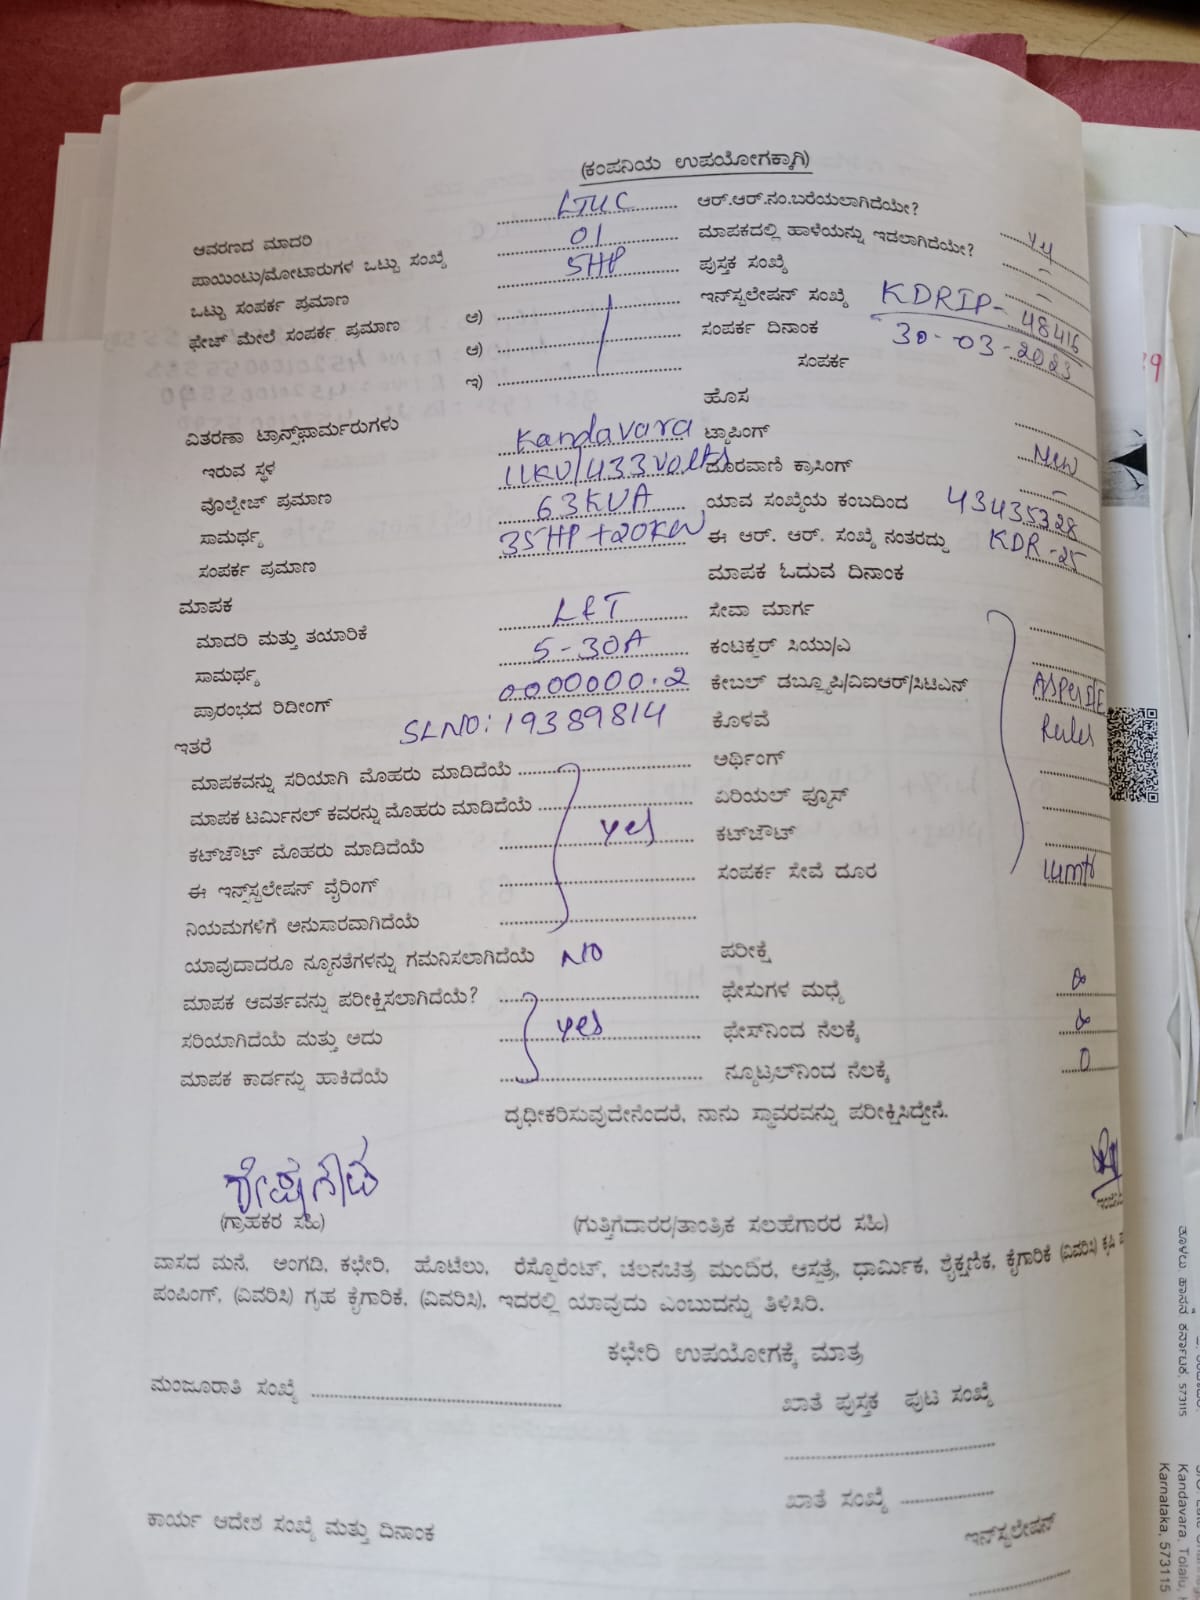 (ಕಂಪನಿಯ ಉಪಯೋಗಕ್ಕಾಗಿ)
ಆವರಣದ ಮಾದರಿ LTUC ಆರ್.ಆರ್.ನಂ.ಬರೆಯಲಾಗಿದೆಯೇ?
ಪಾಯಿಂಟು/ಮೋಟಾರುಗಳ ಒಟ್ಟು ಸಂಖ್ಯೆ 01 ಮಾಪಕದಲ್ಲಿ ಹಾಳೆಯನ್ನು ಇಡಲಾಗಿದೆಯೇ?
ಒಟ್ಟು ಸಂಪರ್ಕ ಪ್ರಮಾಣ 5HP ಪುಸ್ತಕ ಸಂಖ್ಯೆ -
ಫೇಜ್ ಮೇಲೆ ಸಂಪರ್ಕ ಪ್ರಮಾಣ ಅ) ಇನ್‌ಸ್ಟಲೇಷನ್ ಸಂಖ್ಯೆ KDRIP-48416
ಆ) ಸಂಪರ್ಕ ದಿನಾಂಕ 30-03-2023
ಇ) ಸಂಪರ್ಕ
ಹೊಸ
ವಿತರಣಾ ಟ್ರಾನ್ಸ್‌ಫಾರ್ಮರುಗಳು
ಇರುವ ಸ್ಥಳ Kandavara ಟ್ಯಾಪಿಂಗ್ New
ವೊಲ್ಟೇಜ್ ಪ್ರಮಾಣ 11KV/433volts ದೂರವಾಣಿ ಕ್ರಾಸಿಂಗ್ -
ಸಾಮರ್ಥ್ಯ 63KVA ಯಾವ ಸಂಖ್ಯೆಯ ಕಂಬದಿಂದ 43435328
ಸಂಪರ್ಕ ಪ್ರಮಾಣ 35HP+20KW ಈ ಆರ್. ಆರ್. ಸಂಖ್ಯೆ ನಂತರದ್ದು KDR-25
ಮಾಪಕ ಮಾಪಕ ಓದುವ ದಿನಾಂಕ
ಮಾದರಿ ಮತ್ತು ತಯಾರಿಕೆ L&T ಸೇವಾ ಮಾರ್ಗ
ಸಾಮರ್ಥ್ಯ 5-30A ಕಂಟಕ್ಟರ್ ಸಿಯು/ಎ
ಪ್ರಾರಂಭದ ರಿಡೀಂಗ್ 0000000.2 ಕೇಬಲ್ ಡಬ್ಲ್ಯೂಪಿ/ವಿಐಆರ್/ಸಿಟಿಎಸ್ Asper IE
ಇತರೆ SLNO: 19389814 ಕೊಳವೆ Rules
ಮಾಪಕವನ್ನು ಸರಿಯಾಗಿ ಮೊಹರು ಮಾಡಿದೆಯೆ ಅರ್ಥಿಂಗ್
ಮಾಪಕ ಟರ್ಮಿನಲ್ ಕವರನ್ನು ಮೊಹರು ಮಾಡಿದೆಯೆ ಏರಿಯಲ್ ಫ್ಯೂಸ್
ಕಟ್‌ಔಟ್ ಮೊಹರು ಮಾಡಿದೆಯೆ yes ಕಟ್‌ಔಟ್
ಈ ಇನ್‌ಸ್ಟಲೇಷನ್ ವೈರಿಂಗ್ ಸಂಪರ್ಕ ಸೇವೆ ದೂರ
ನಿಯಮಗಳಿಗೆ ಅನುಸಾರವಾಗಿದೆಯೆ
ಯಾವುದಾದರೂ ನ್ಯೂನತೆಗಳನ್ನು ಗಮನಿಸಲಾಗಿದೆಯೆ NO ಪರೀಕ್ಷೆ
ಮಾಪಕ ಆವರ್ತವನ್ನು ಪರೀಕ್ಷಿಸಲಾಗಿದೆಯೆ? ಫೇಸುಗಳ ಮಧ್ಯೆ ∞
ಸರಿಯಾಗಿದೆಯೆ ಮತ್ತು ಅದು yes ಫೇಸ್‌ನಿಂದ ನೆಲಕ್ಕೆ ∞
ಮಾಪಕ ಕಾರ್ಡನ್ನು ಹಾಕಿದೆಯೆ ನ್ಯೂಟ್ರಲ್‌ನಿಂದ ನೆಲಕ್ಕೆ 0
ದೃಢೀಕರಿಸುವುದೇನೆಂದರೆ, ನಾನು ಸ್ಥಾವರವನ್ನು ಪರೀಕ್ಷಿಸಿದ್ದೇನೆ.
ಶೇಷೇಗೌಡ
(ಗ್ರಾಹಕರ ಸಹಿ) (ಗುತ್ತಿಗೆದಾರರ/ತಾಂತ್ರಿಕ ಸಲಹೆಗಾರರ ಸಹಿ)
ವಾಸದ ಮನೆ, ಅಂಗಡಿ, ಕಛೇರಿ, ಹೊಟೆಲು, ರೆಸ್ಟೋರೆಂಟ್, ಚಲನಚಿತ್ರ ಮಂದಿರ, ಆಸ್ಪತ್ರೆ, ಧಾರ್ಮಿಕ, ಶೈಕ್ಷಣಿಕ, ಕೈಗಾರಿಕೆ (ವಿವರಿಸಿ) ಕೃಷಿ
ಪಂಪಿಂಗ್, (ವಿವರಿಸಿ) ಗೃಹ ಕೈಗಾರಿಕೆ, (ವಿವರಿಸಿ), ಇದರಲ್ಲಿ ಯಾವುದು ಎಂಬುದನ್ನು ತಿಳಿಸಿರಿ.
ಕಛೇರಿ ಉಪಯೋಗಕ್ಕೆ ಮಾತ್ರ
ಮಂಜೂರಾತಿ ಸಂಖ್ಯೆ ಖಾತೆ ಪುಸ್ತಕ ಪುಟ ಸಂಖ್ಯೆ
ಖಾತೆ ಸಂಖ್ಯೆ
ಕಾರ್ಯ ಆದೇಶ ಸಂಖ್ಯೆ ಮತ್ತು ದಿನಾಂಕ ಇನ್‌ಸ್ಟಲೇಷನ್
ತೊಳಲು ಹಾಸನ ಕರ್ನಾಟಕ, 573115
Kandavara, Tolalu,
Karnataka, 573115